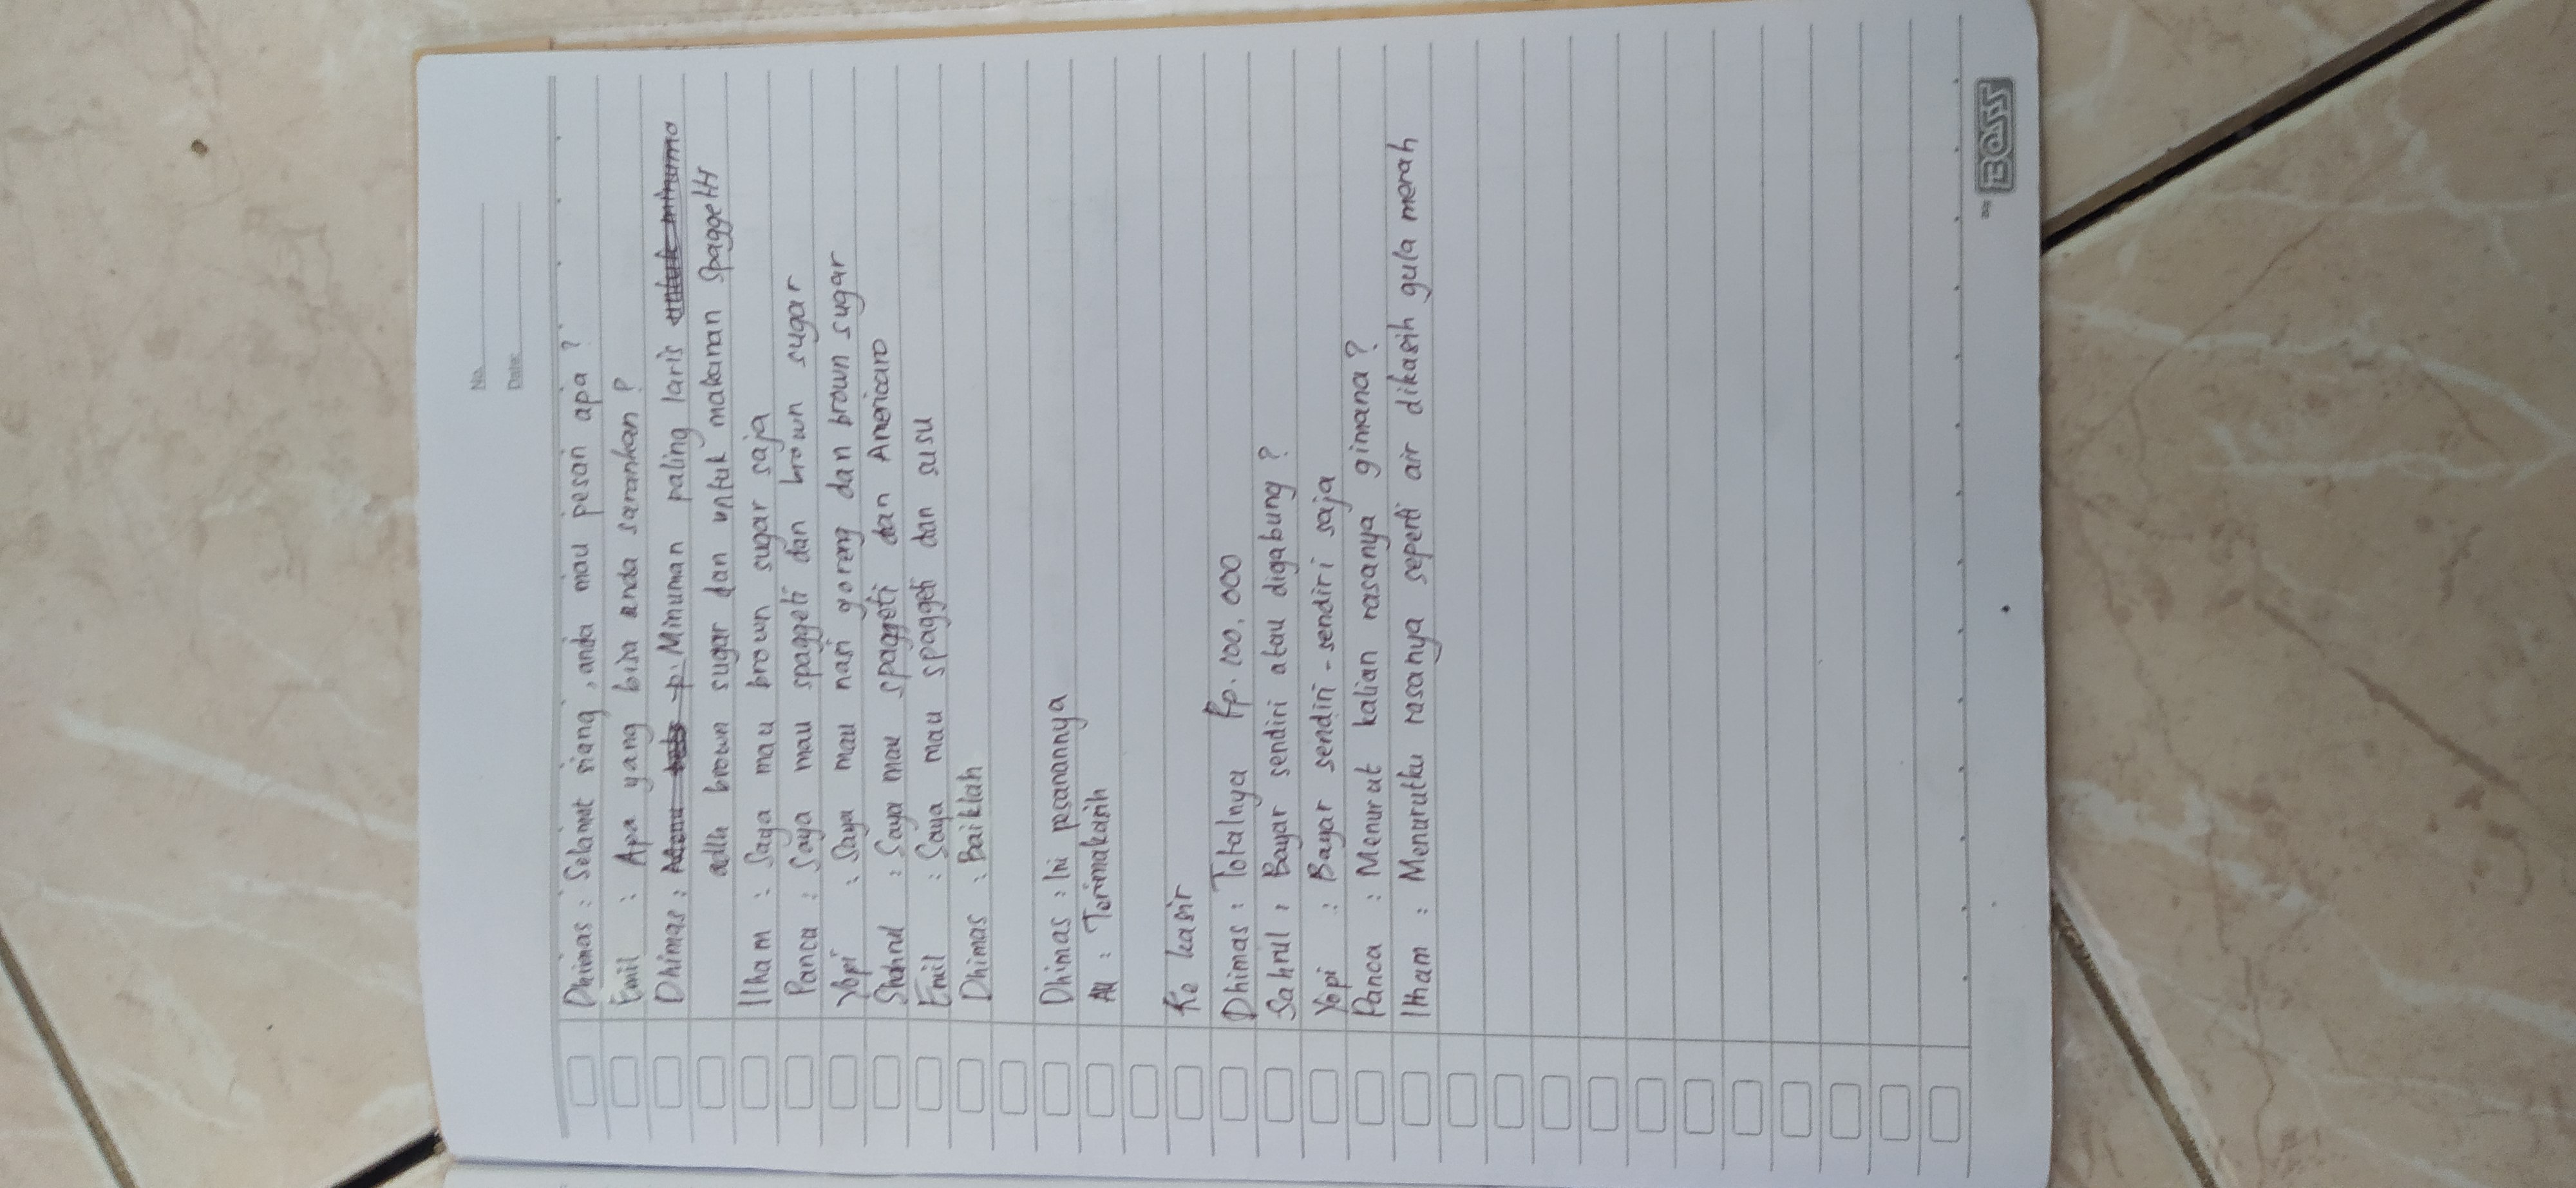 No.
Date:
Dhimas : Selamat siang, anda mau pesan apa ?
Emil : Apa yang bisa anda sarankan ?
Dhimas : Minuman paling laris
adlh brown sugar dan untuk makanan Spaggetti
Ilham : Saya mau brown sugar saja
Panca : Saya mau spaggeti dan brown sugar
Yopi : Saya mau nasi goreng dan brown sugar
Shahrul : Saya mau spaggeti dan Americano
Emil : Saya mau spaggeti dan susu
Dhimas : Baiklah
Dhimas : Ini pesanannya
All : Terimakasih
Ke kasir
Dhimas : Totalnya Rp. 100.000
Sahrul : Bayar sendiri atau digabung ?
Yopi : Bayar sendiri - sendiri saja
Panca : Menurut kalian rasanya gimana ?
Ilham : Menurutku rasanya seperti air dikasih gula merah
BOSS